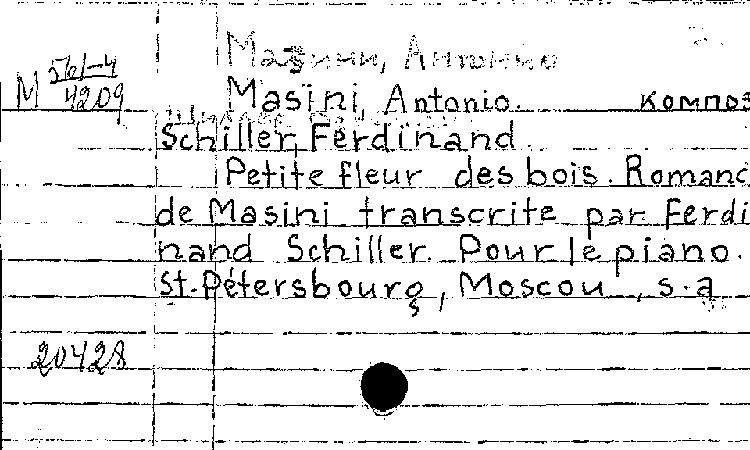 Мазини, Антонио
М 561-4
4209
Masini, Antonio. композ
Schiller, Ferdinand
Petite fleur des bois. Romanc
de Masini transcrite par Ferdi
nand Schiller. Pour le piano.
St.-Pétersbourg, Moscou, s.a
20428